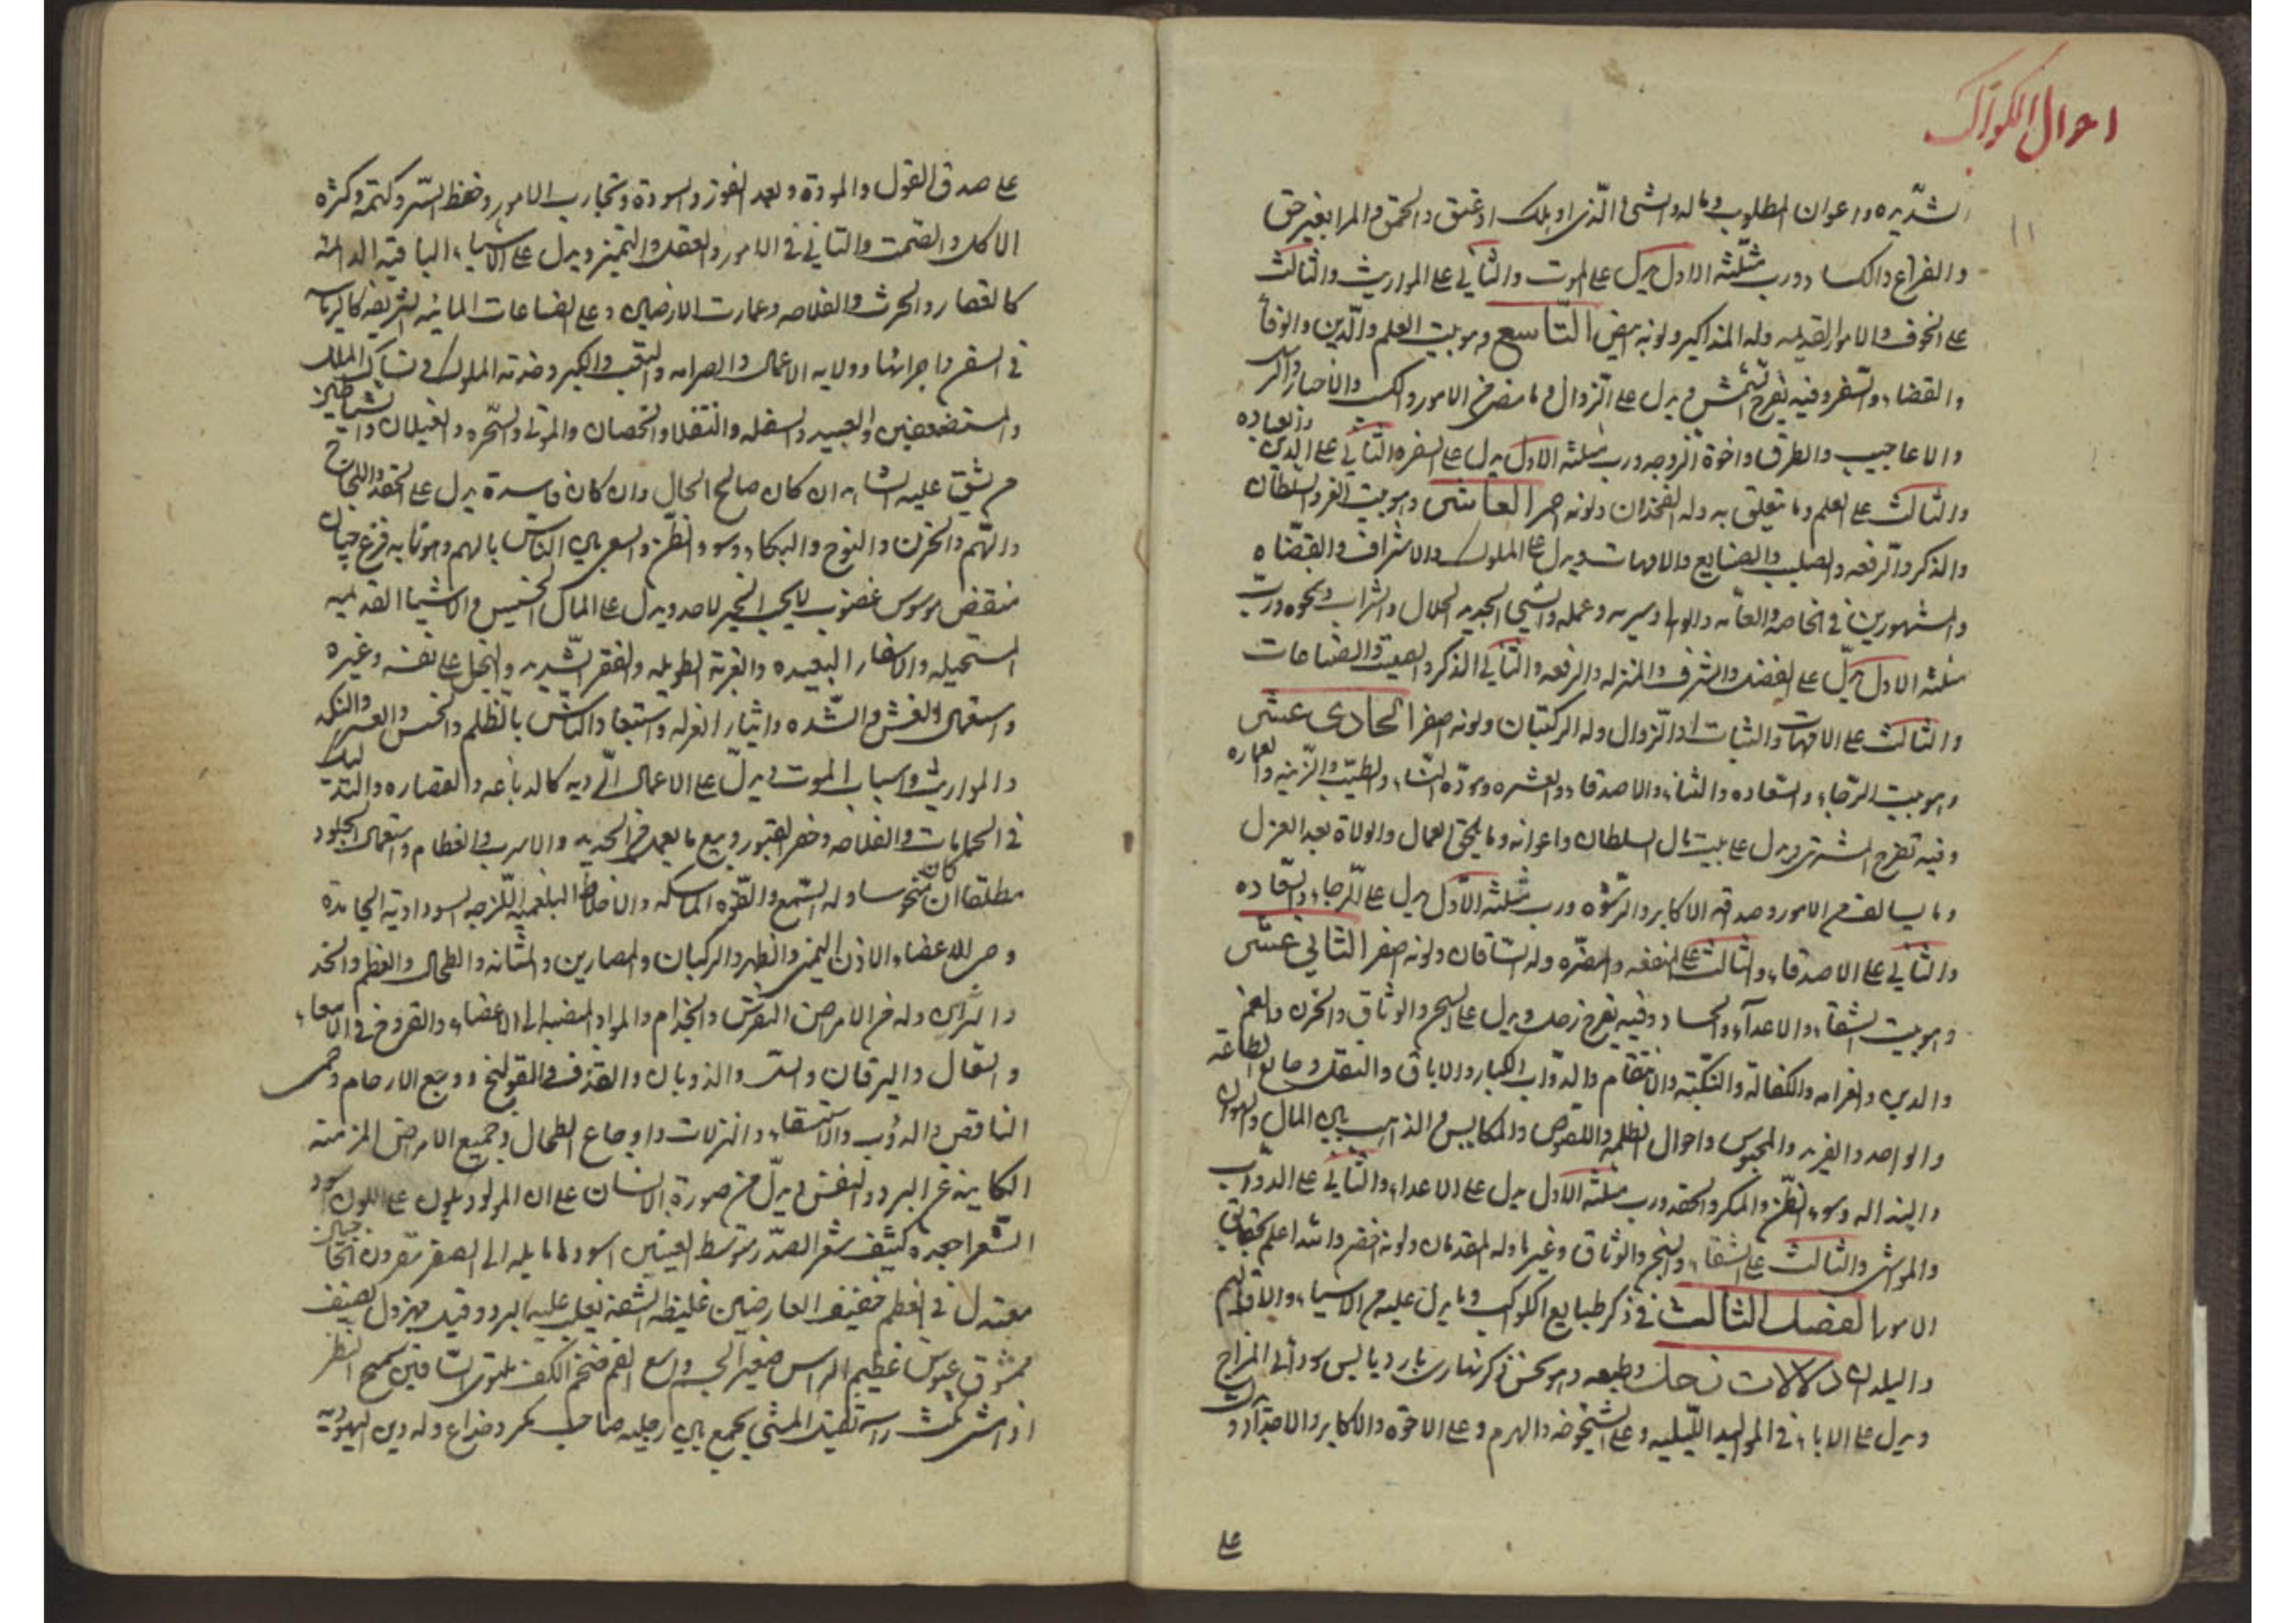 احوال الكواكب
الشديده واعوان المطلوب وماله والشى الذى او هلك او عتيق والحمق والمرا بغير حق
والفراغ والكساد ورب مثلثه الاول يدل على الموت والثانى على المواريث والثالث
على الخوف والامور القديمه وله المذاكير ولونه ابيض التاسع وهو بيت العلم والدين والوفا
والقضاء والسفر وفيه تفرح الشمس ويدل على الزوال وما مضى من الامور والكتب والاخبار
والاعاجيب والطرق واخوة الزوجه ورب مثلثه الاول يدل على السفر والثانى على الدين والعباده
والثالث على العلم وما يتعلق به وله الفخذان ولونه احمر العاشر وهو بيت العز والسلطان
والذكر والرفعه والصلب والصنايع والامهات ويدل على الملوك والاشراف والقضاه
والمشهورين فى الخاصه والعامه والوالى وسيره وعمله والشى الجديد الحلال والشراب ونحوه ورب
مثلثه الاول يدل على الفضل والشرف والمنزله والرفعه والثانى الذكر والصيت والصناعات
والثالث على الامهات والثبات او الزوال وله الركبتان ولونه اصفر الحادى عشر
وهو بيت الرجاء والسعاده والثناء والاصدقاء والعشره ومودة النساء والطيب والزينه والعماره
وفيه تفرح المشترى ويدل على بيت مال السلطان واعوانه وما يلحق العمال والولاة بعد العزل
وما يسالف من الامور وصداقه الاكابر والرشوه ورب مثلثه الاول يدل على الرجاء والسعاده
والثانى على الاصدقاء والثالث على المنفعه والمضره وله الساقان ولونه اصفر الثانى عشر
وهو بيت الشقاء والاعداء والحساد وفيه يفرح زحل ويدل على السجن والوثاق والحزن والغم
والدين والغرامه والكفالة والنكبة والانتقام والدواب الكبار والاباق والثقل وخالع الطاعة
والواحد والفريد والمحبوس واحوال الظلمه واللصوص والمكايس والذاهب من المال والهوان
والنذاله وسوء الظن والمكر والحقد ورب مثلثه الاول يدل على الاعداء والثانى على الدواب
والمواشى والثالث على الشقاء والسجن والوثاق وغيرها وله القدمان ولونه اخضر والله اعلم بحقايق
الامور الفصل الثالث فى ذكر طبايع الكواكب وما يدل عليه من الاشياء والاقاليم
والبلدان دلالات زحل وطبعه وهو نحس ذكر نهارى بارد يابس سوداى المزاج
ويدل على الاباء فى المواليد الليليه وعلى الشيخوخه والهرم وعلى الاخوه والاكابر والاجداد ويدل
على
على صدق القول والمودة وبعد الغور والسودة وتجارب الامور وحفظ السر وكتمه وكثره
الاكل والصمت والتانى فى الامور والعقل والتميز ويدل على الاشياء الباقيه الدايمه
كالعقار والحرث والفلاحه وعمارت الارضين وعلى الصناعات المائيه الشريفه كالرياسه
فى السفن واجرائها وولايه الاعمال والصرامه والتعب والكبر وخدمة الملوك ونساك الملل
والمستضعفين والعبيد والسفله والثقلا والخصيان والموتى والسحره والغيلان والشياطين
ومن يشق عليه الشا هذا ان كان صالح الحال وان كان فاسدة يدل على الحقد واللجاج
والهم والحزن والنوح والبكاء وسو الظن والسعى بين الناس بالهم وهو نابه فزع جبان
منقض موسوس غضوب لا يحب الخير لاحد ويدل على المال الخسيس والاشيا القديمه
المستحيله والاسفار البعيده والغربة الطويله والفقر الشديد والبخل على نفسه وغيره
واستعمال الغش والشده وايثار العزله واستبعاد الناس بالظلم والحبس والعسر والنكد
والمواريث واسباب الموت ويدل على الاعمال الرديه كالدباغه والقصاره والتدليك
فى الحمامات والفلاحه وحفر القبور وبيع ما يعمل من الحديد والاسرب والعظام واستعمال الجلود
مطلقا ان كان منحوسا وله السمع والقوه الماسكه والاخلاط البلغميه اللزجه السوداويه الجامدة
ومن الاعضاء الاذن اليمنى والظهر والركبتان والمصارين والمثانه والطحال والعظم والخد
وله من الامراض النقرس والجذام والمواد المنصبه الى الاعضاء والقروح فى الامعاء
والسعال واليرقان والسل والذوبان والقذف والقولنج ووجع الارحام وحمى
الناقض والذوب والاستسقاء والنزلات واوجاع الطحال وجميع الامراض المزمنه
الكاينه عن البرد والنفس ويدل من صورة الانسان على ان المولود يكون على اللون اسود
الشعر اجعد كثيف شعر الصدر متوسط العينين اسودها مايله الى الصغر مقرون الحاجبان
معتدل فى العظم خفيف العارضين غليظ الشفة يغلب عليه البرد وقيل مهزول ضعيف
ممشوق عبوس عظيم الراس صغير الجسم واسع الفم ضخم الكف ملتوى الساقين سميج المنظر
اذا مشى نكث راسه ثقيل المشى يجمع بين رجليه صاحب مكر وخداع وله دين اليهوديه